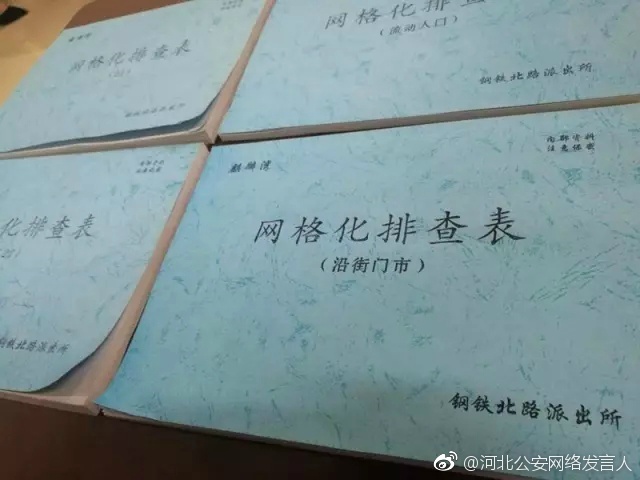 网格化排查表
网格化排查
(流动人口)
钢铁北路派出所
化排查表
钢铁北路派出所
麒麟湾
内部资料
注意保密
网格化排查表
(沿街门市)
钢铁北路派出所
@河北公安网络发言人